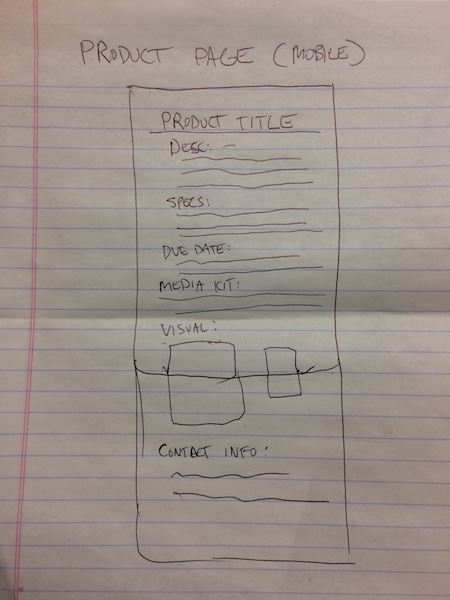 PRODUCT PAGE (MOBILE)
PRODUCT TITLE
DESC:
SPECS:
DUE DATE:
MEDIA KIT:
VISUAL:
CONTACT INFO: